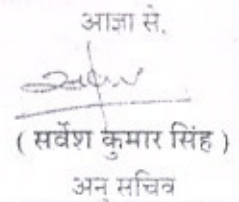 आज्ञा से,
( सर्वेश कुमार सिंह )
अनु सचिव